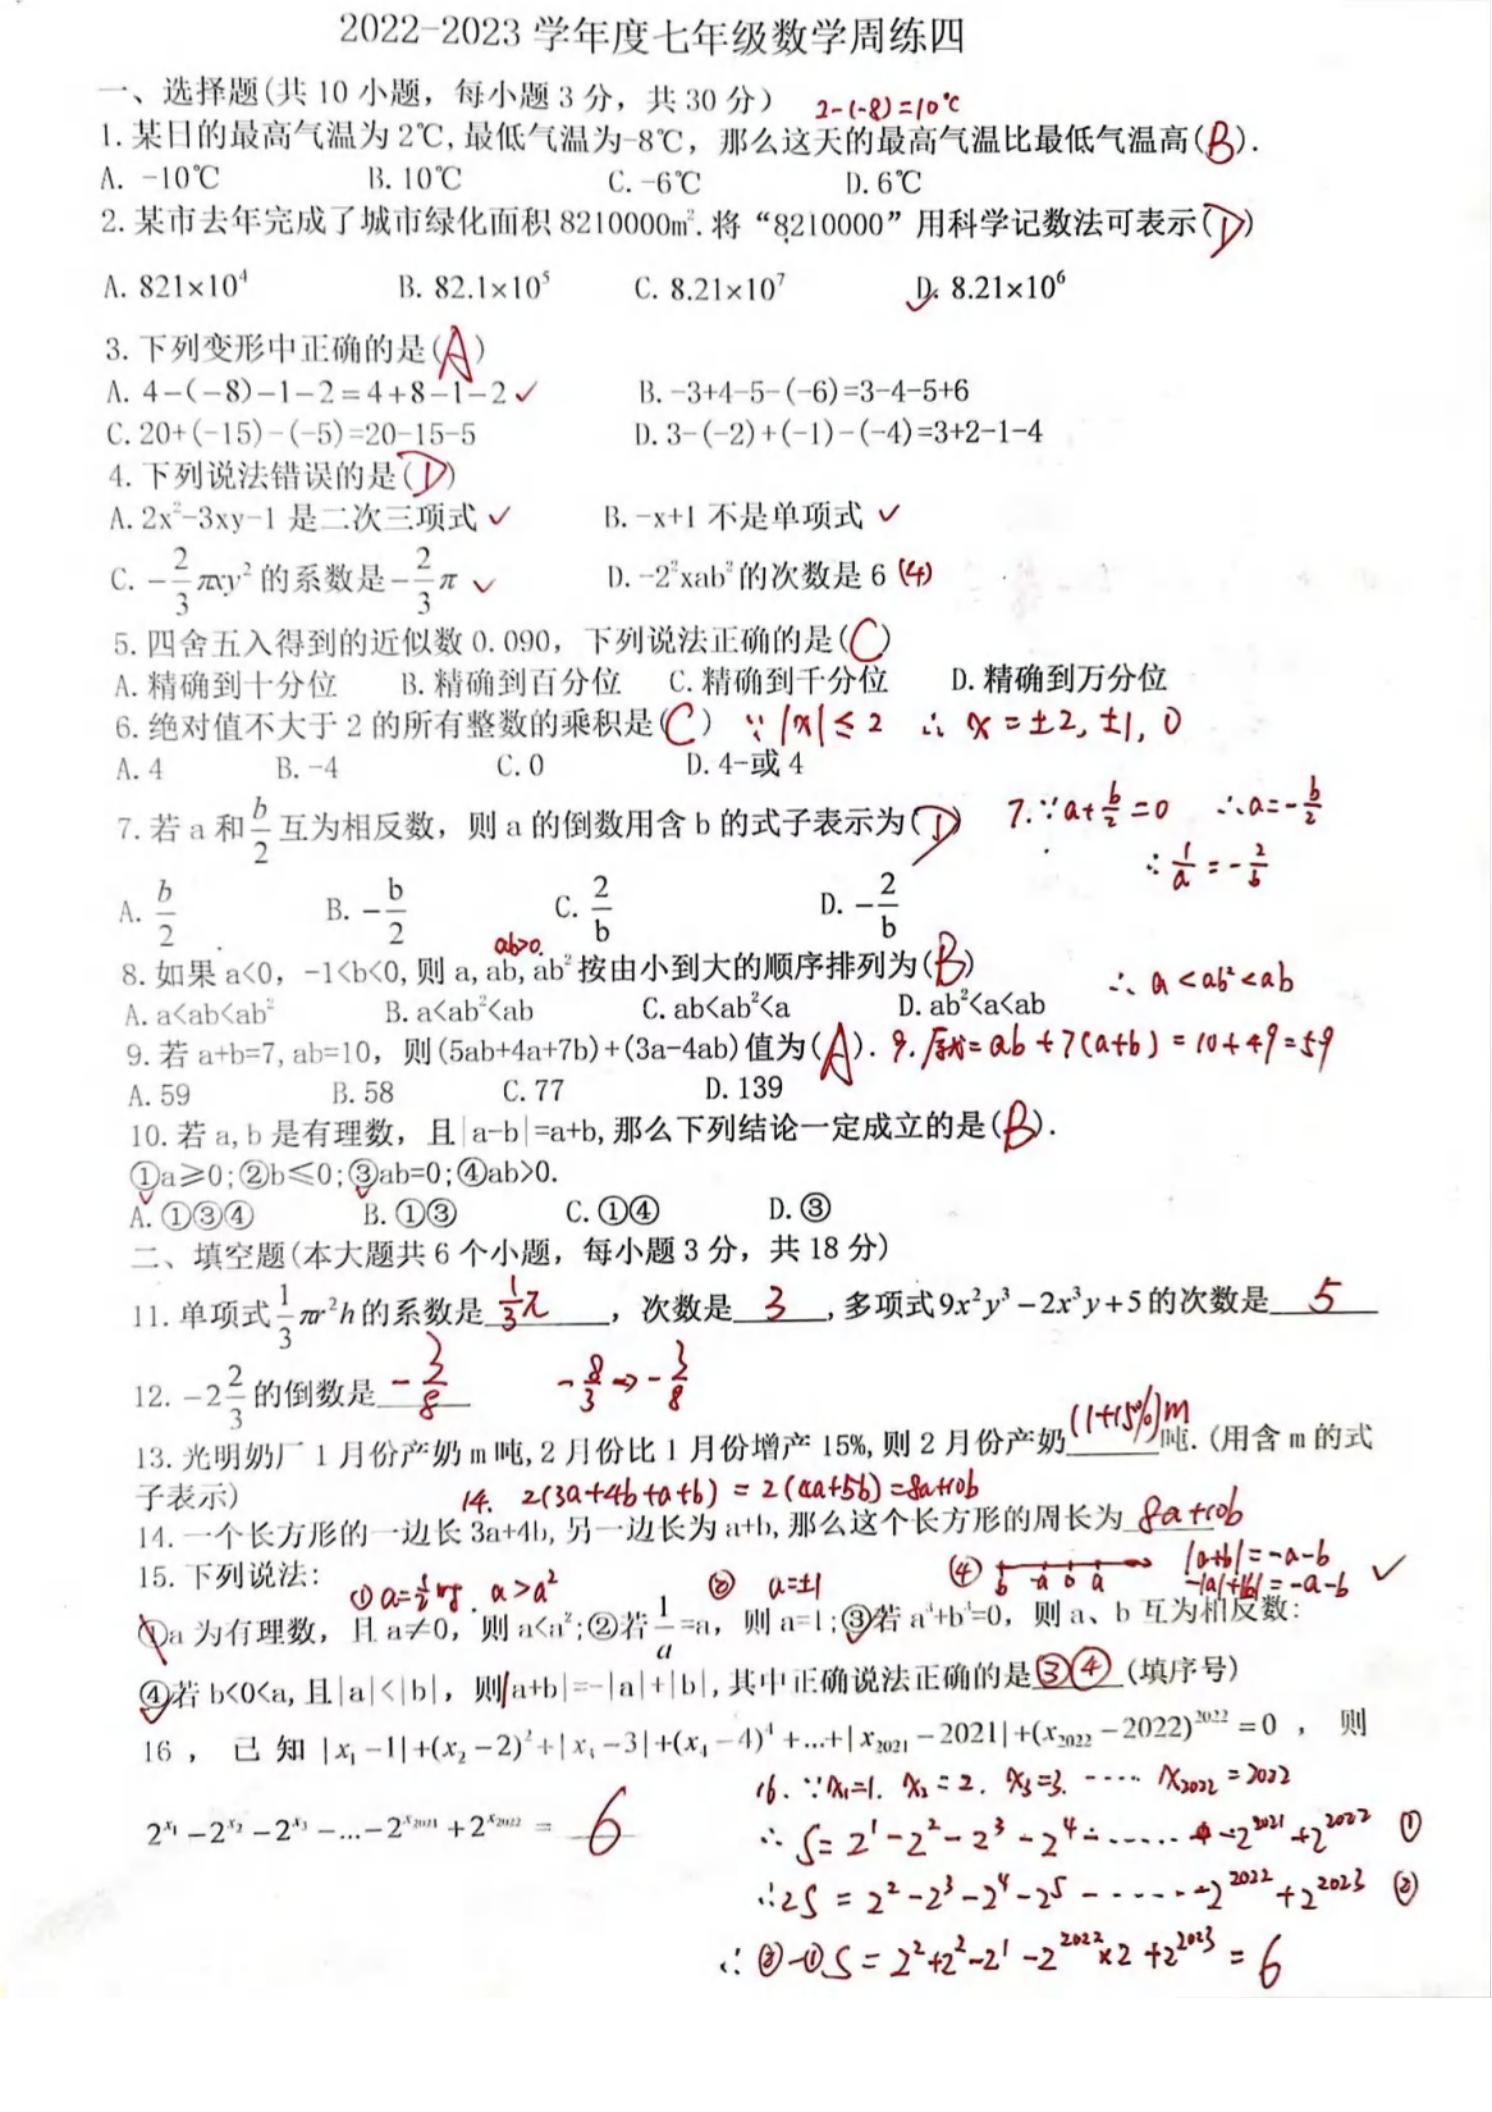 2022-2023 学年度七年级数学周练四
一、选择题(共 10 小题，每小题 3 分，共 30 分） 2-(-8)=10℃
1. 某日的最高气温为 2℃, 最低气温为-8℃，那么这天的最高气温比最低气温高(B).
A. -10℃ B. 10℃ C. -6℃ D. 6℃
2. 某市去年完成了城市绿化面积 8210000m². 将“8210000”用科学记数法可表示(D)
A. 821×10⁴ B. 82.1×10⁵ C. 8.21×10⁷ D. 8.21×10⁶
3. 下列变形中正确的是(A)
A. 4-(-8)-1-2=4+8-1-2✓ B. -3+4-5-(-6)=3-4-5+6
C. 20+(-15)-(-5)=20-15-5 D. 3-(-2)+(-1)-(-4)=3+2-1-4
4. 下列说法错误的是(D)
A. 2x²-3xy-1 是二次三项式 ✓ B. -x+1 不是单项式 ✓
C. -2/3 πxy² 的系数是-2/3 π ✓ D. -2²xab²的次数是 6 (4)
5. 四舍五入得到的近似数 0.090，下列说法正确的是(C)
A. 精确到十分位 B. 精确到百分位 C. 精确到千分位 D. 精确到万分位
6. 绝对值不大于 2 的所有整数的乘积是(C) ∵|x|≤2 ∴ x=±2, ±1, 0
A. 4 B. -4 C. 0 D. 4-或 4
7. 若 a 和 b/2 互为相反数，则 a 的倒数用含 b 的式子表示为(D) 7.∵a+b/2=0 ∴a=-b/2
∴1/a=-2/b
A. b/2 B. -b/2 C. 2/b D. -2/b
ab>0.
8. 如果 a<0，-1<b<0, 则 a, ab, ab²按由小到大的顺序排列为(B) ∴ a<ab²<ab
A. a<ab<ab² B. a<ab²<ab C. ab<ab²<a D. ab²<a<ab
9. 若 a+b=7, ab=10，则(5ab+4a+7b)+(3a-4ab)值为(A). 9. 原式=ab+7(a+b)=10+49=59
A. 59 B. 58 C. 77 D. 139
10. 若 a, b 是有理数，且|a-b|=a+b, 那么下列结论一定成立的是(B).
①a≥0;②b≤0;③ab=0;④ab>0.
A. ①③④ B. ①③ C. ①④ D. ③
二、填空题(本大题共 6 个小题，每小题 3 分，共 18 分)
11. 单项式 1/3 πr²h的系数是 1/3π ，次数是 3 , 多项式9x²y³-2x³y+5的次数是 5
12. -2 2/3 的倒数是 -3/8 -8/3→-3/8
13. 光明奶厂 1 月份产奶 m 吨, 2 月份比 1 月份增产 15%, 则 2 月份产奶 (1+15%)m 吨. (用含 m 的式
子表示) 14. 2(3a+4b+a+b)=2(4a+5b)=8a+10b
14. 一个长方形的一边长 3a+4b, 另一边长为 a+b, 那么这个长方形的周长为 8a+10b
15. 下列说法: ①a=1/2时. a>a² ② a=±1 ④ b -a 0 a |a+b|=-a-b ✓
-|a|+|b|=-a-b
①a 为有理数，且 a≠0，则 a<a²;②若 1/a=a，则 a=1;③若 a³+b³=0，则 a、b 互为相反数:
④若 b<0<a, 且|a|<|b|，则|a+b|=-|a|+|b|, 其中正确说法正确的是 ③④ (填序号)
16 ，已知 |x₁-1|+(x₂-2)²+|x₃-3|+(x₄-4)⁴+...+|x₂₀₂₁-2021|+(x₂₀₂₂-2022)²⁰²²=0 ，则
16. ∵x₁=1. x₂=2. x₃=3. ····· x₂₀₂₂=2022
2^x₁-2^x₂-2^x₃-...-2^x₂₀₂₁+2^x₂₀₂₂= 6
∴ S=2¹-2²-2³-2⁴-······-2²⁰²¹+2²⁰²² ①
∴2S=2²-2³-2⁴-2⁵-······-2²⁰²²+2²⁰²³ ②
∴②-① S=2²+2²-2¹-2²⁰²²×2+2²⁰²³=6